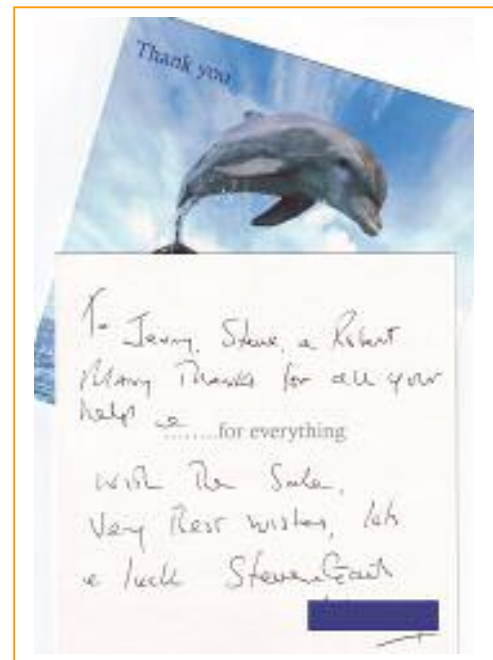 Thank you
To Jenny, Steve, & Robert
Many Thanks for all your
help &
........for everything
with The Sale,
Very Best wishes, lots
of luck Steven